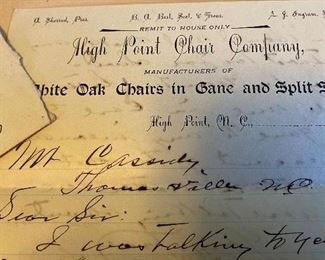 A. Sherrod, Pres. B. A. Best, Sect. & Treas.
REMIT TO HOUSE ONLY
High Point Chair Company,
MANUFACTURERS OF
White Oak Chairs in Cane and Split S
High Point, N. C.,
Mr Cassidy
Thomasville NC
Dear Sir:
I was talking to